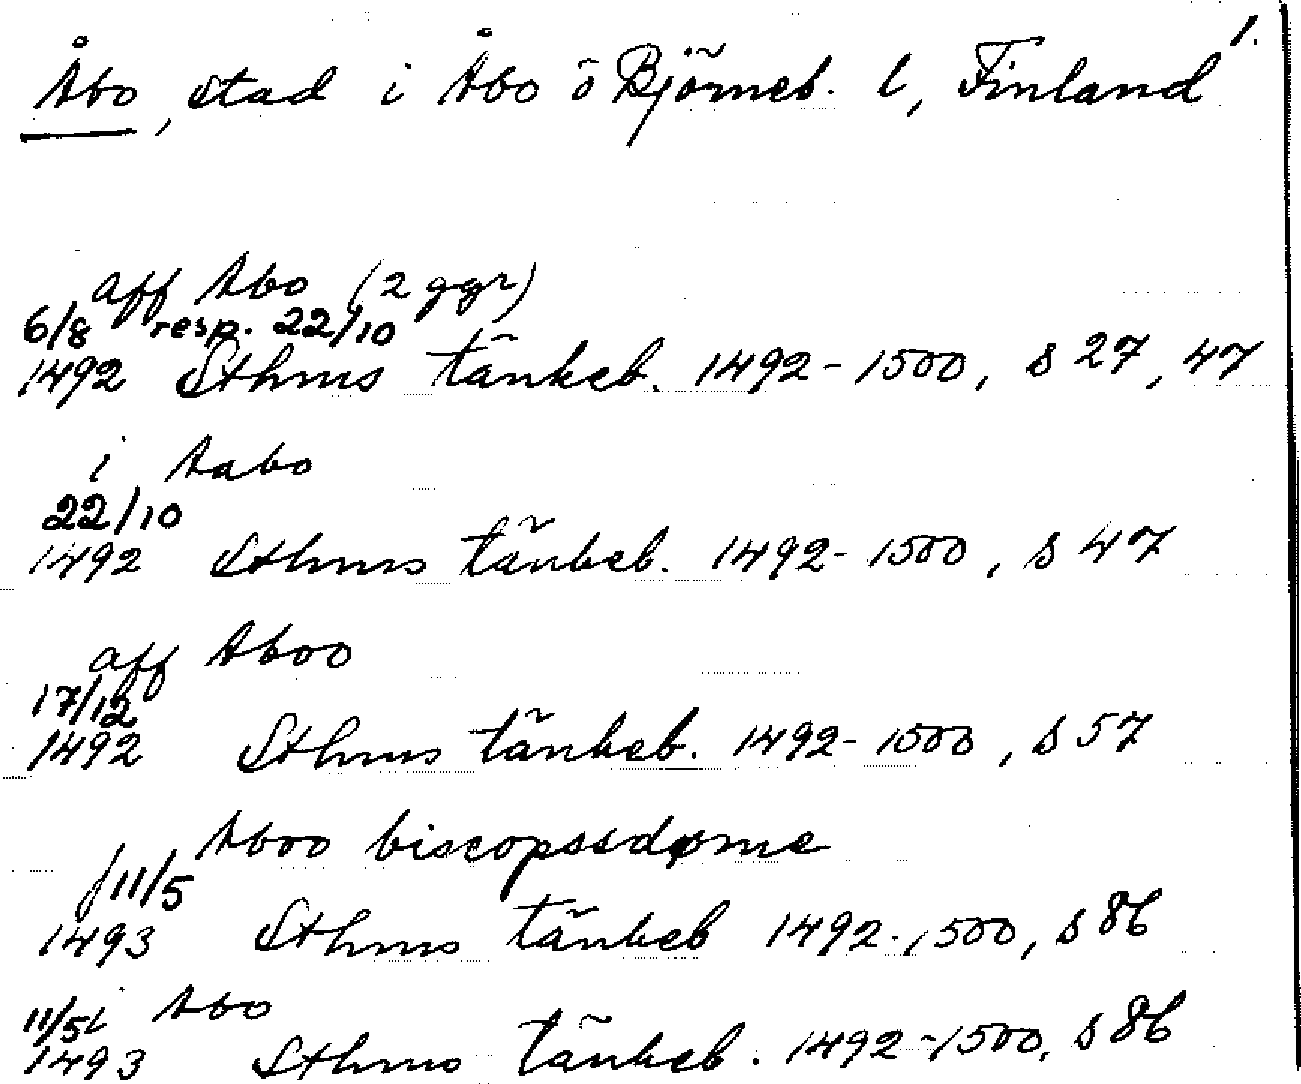 1.
Åbo, stad i Åbo o Björneb. l, Finland
aff Abo (2 ggr)
6/8 resp. 22/10
1492 Sthms tänkeb. 1492-1500, s 27, 47
i Aabo
22/10
1492 Sthms tänkeb. 1492-1500, s 47
aff Aboo
17/12
1492 Sthms tänkeb. 1492-1500, s 57
Aboo biscopssdøme
j 11/5
1493 Sthms tänkeb 1492-1500, s 86
11/5 i Abo
1493 Sthms tänkeb. 1492-1500, s 86